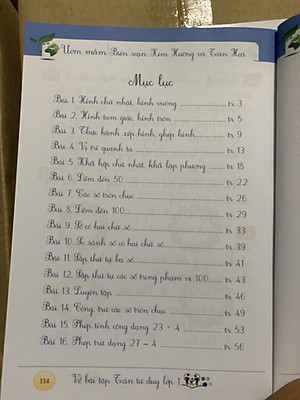 Ươm mầm Biên soạn: Kim Hường và Toán Họa
Mục lục
Bài 1. Hình chữ nhật, hình vuông tr 3
Bài 2. Hình tam giác, hình tròn tr 5
Bài 3. Thực hành xếp hình, ghép hình tr 9
Bài 4. Vị trí quanh ta tr 13
Bài 5. Khối hộp chữ nhật, khối lập phương tr 18
Bài 6. Đếm đến 50 tr 22
Bài 7. Các số tròn chục tr 26
Bài 8. Đếm đến 100 tr 29
Bài 9. Số có hai chữ số tr 33
Bài 10. So sánh số có hai chữ số tr 39
Bài 11. Sắp thứ tự ba số tr 41
Bài 12. Sắp thứ tự các số trong phạm vi 100 tr 43
Bài 13. Luyện tập tr 46
Bài 14. Cộng, trừ các số tròn chục tr 49
Bài 15. Phép tính cộng dạng 23 + 4 tr 53
Bài 16. Phép trừ dạng 27 – 4 tr 56
114 Vở bài tập Toán tư duy lớp 1